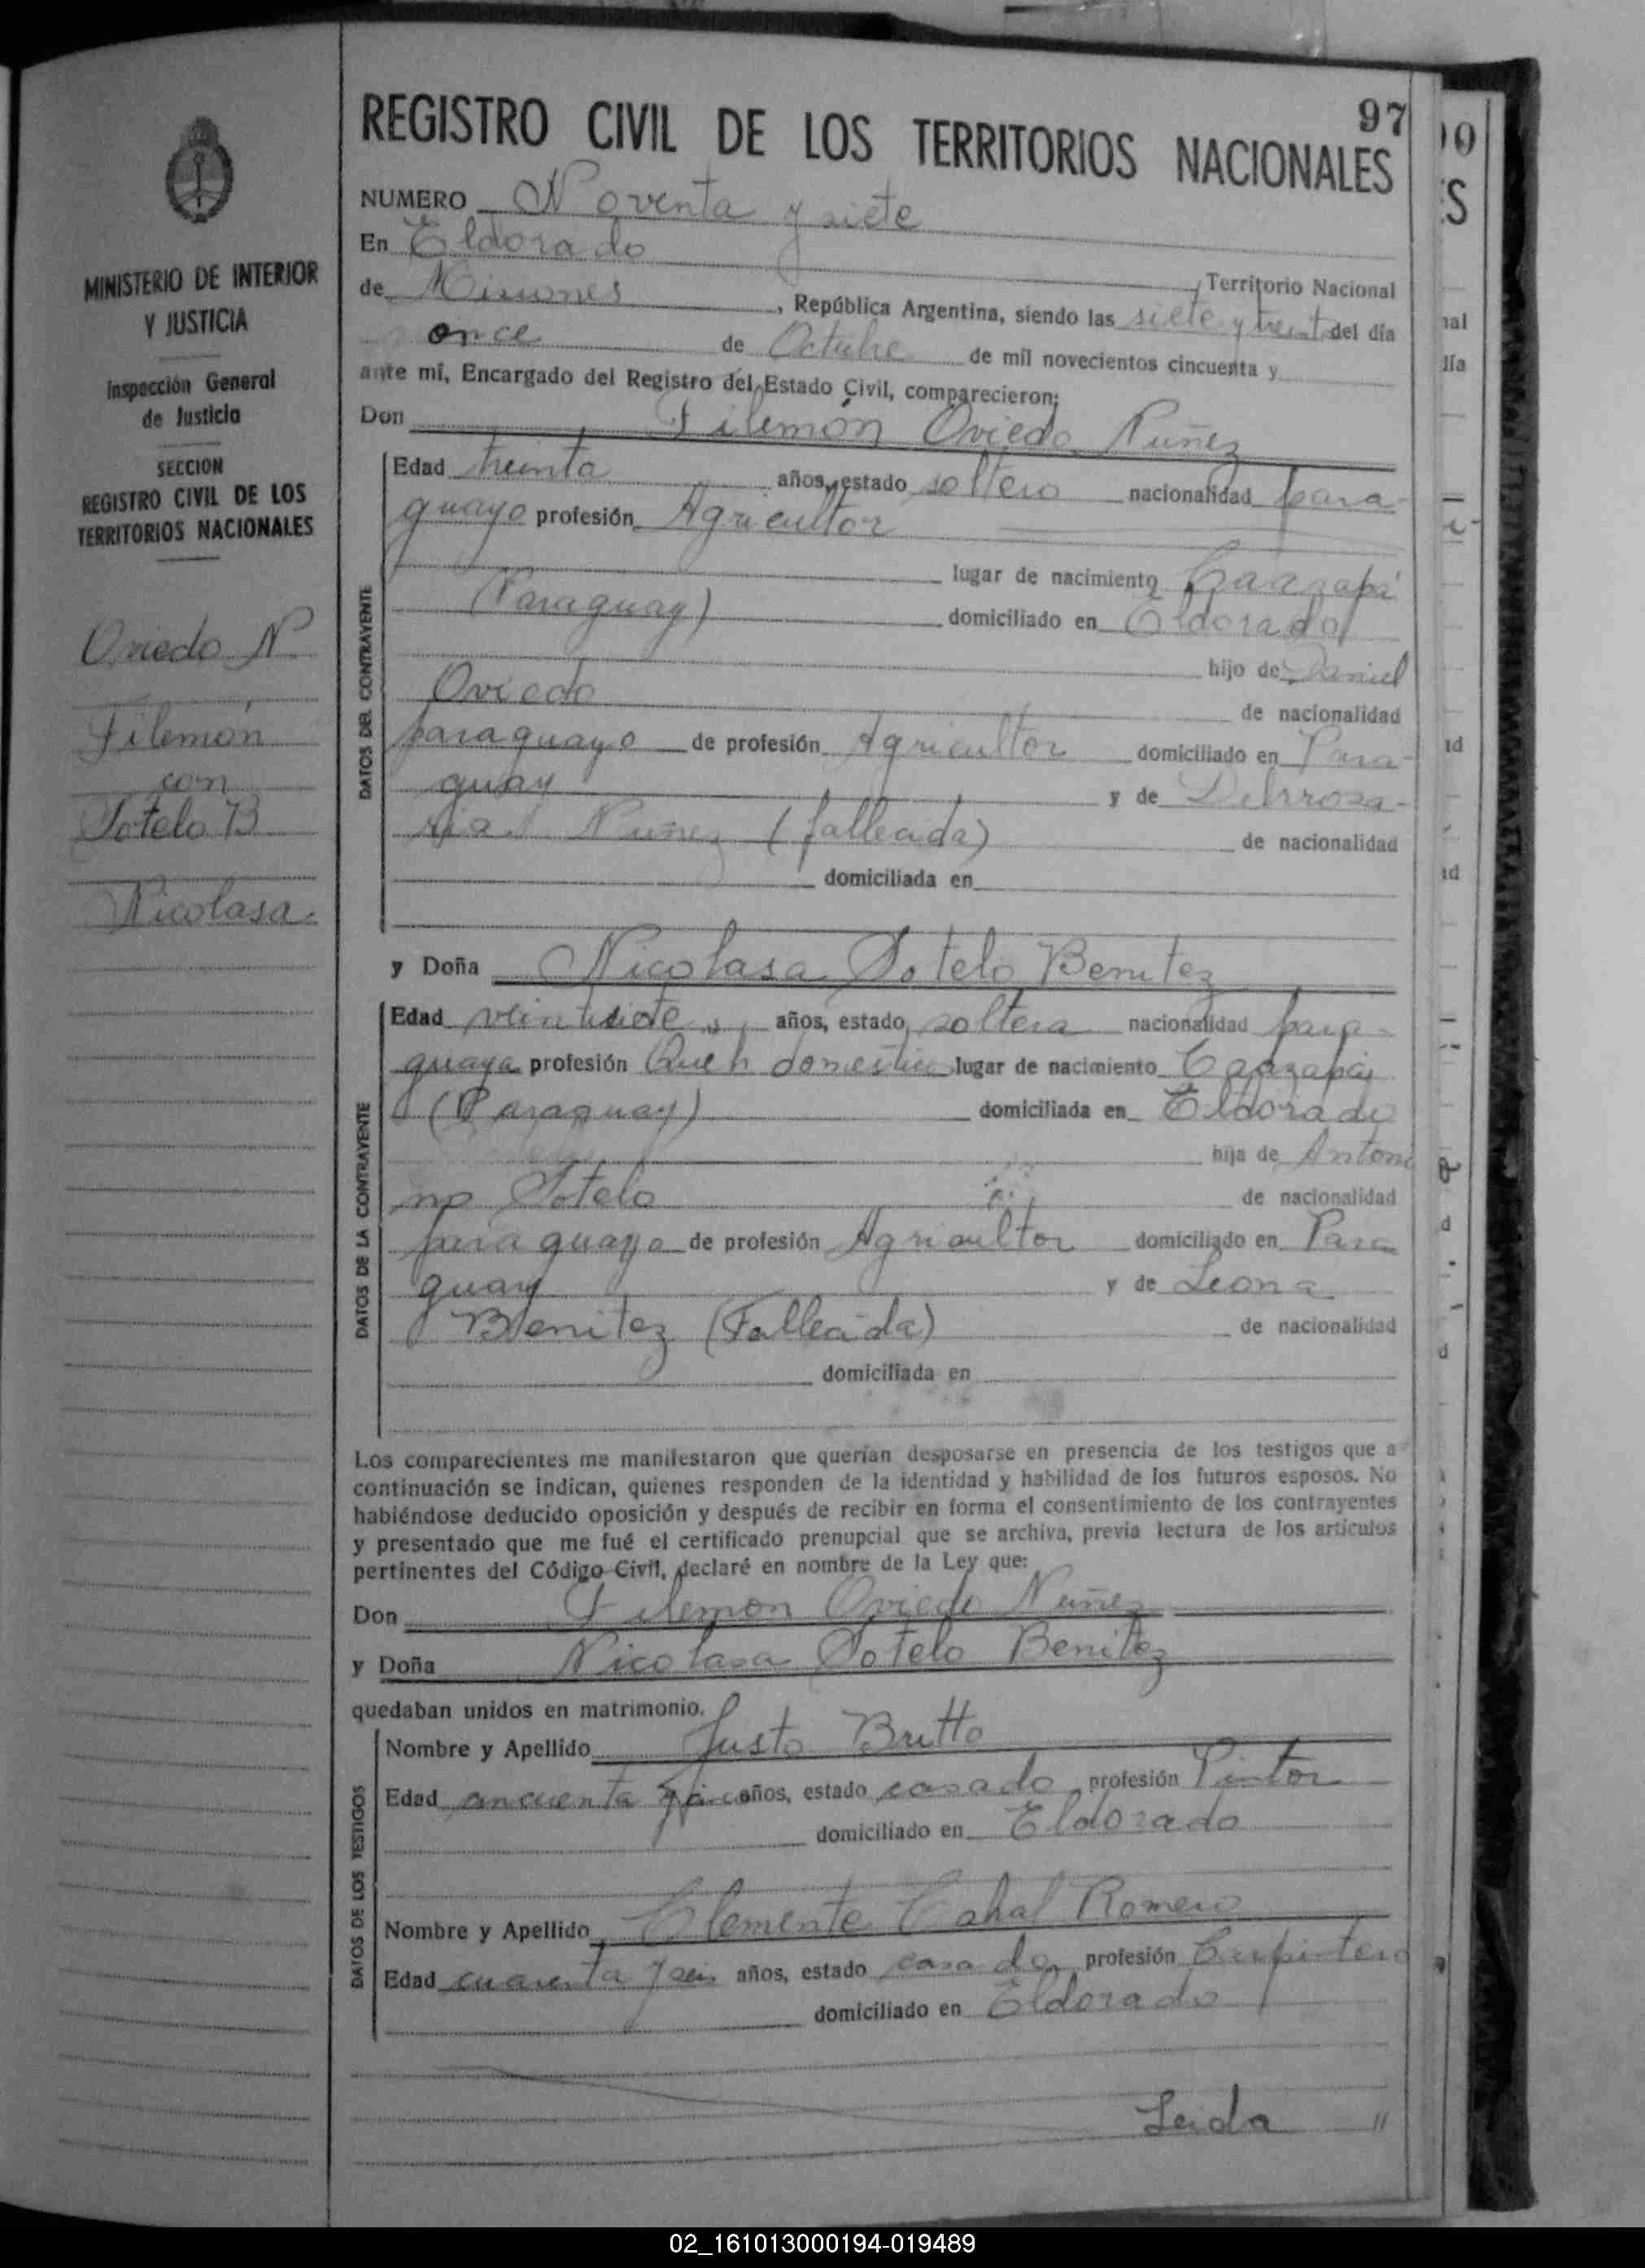 REGISTRO CIVIL DE LOS TERRITORIOS NACIONALES
97
NUMERO Noventa y siete
En Eldorado
Territorio Nacional
de Misiones, República Argentina, siendo las siete y treint del día
once de Octubre de mil novecientos cincuenta y
ante mí, Encargado del Registro del Estado Civil, comparecieron:
Don Filemón Oviedo Nuñez
Edad treinta años, estado soltero nacionalidad para-
guayo profesión Agricultor
lugar de nacimiento Caazapá
(Paraguay) domiciliado en Eldorado
hijo de Daniel
Oviedo de nacionalidad
paraguayo de profesión Agricultor domiciliado en Para-
guay y de Delrrosa-
ria Nuñez (fallecida) de nacionalidad
domiciliada en
y Doña Nicolasa Sotelo Benitez
Edad veintisiete años, estado soltera nacionalidad para-
guaya profesión Queh domestic lugar de nacimiento Caazapá
(Paraguay) domiciliada en Eldorado
hija de Antoni
no Sotelo de nacionalidad
paraguayo de profesión Agricultor domiciliado en Para
guay y de Leona
Benitez (Fallecida) de nacionalidad
domiciliada en
Los comparecientes me manifestaron que querían desposarse en presencia de los testigos que a
continuación se indican, quienes responden de la identidad y habilidad de los futuros esposos. No
habiéndose deducido oposición y después de recibir en forma el consentimiento de los contrayentes
y presentado que me fué el certificado prenupcial que se archiva, previa lectura de los artículos
pertinentes del Código Civil, declaré en nombre de la Ley que:
Don Filemon Oviedo Nuñez
y Doña Nicolasa Sotelo Benitez
quedaban unidos en matrimonio.
Nombre y Apellido Justo Britto
Edad cincuenta y cinco años, estado casado profesión Pintor
domiciliado en Eldorado
Nombre y Apellido Clemente Cabal Romero
Edad cuarenta y seis años, estado casado profesión Carpintero
domiciliado en Eldorado
Leida //
DATOS DEL CONTRAYENTE
DATOS DE LA CONTRAYENTE
DATOS DE LOS TESTIGOS
MINISTERIO DE INTERIOR
Y JUSTICIA
Inspección General
de Justicia
SECCION
REGISTRO CIVIL DE LOS
TERRITORIOS NACIONALES
Oviedo N
Filemón
con
Sotelo B
Nicolasa.
02_161013000194-019489